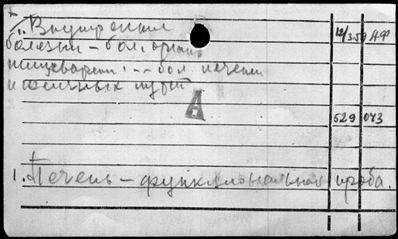 Внутренние 12/3.59 АФ
болезни – бол. органов
пищеварения – бол. печени
и желчных путей
А
529 073
1. Печень – функциональная проба.